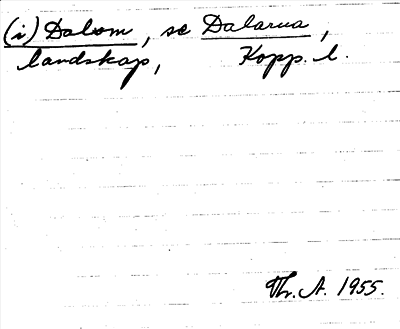 (i) Dalom, se Dalarna,
landskap, Kopp. l.
Th. A. 1955.